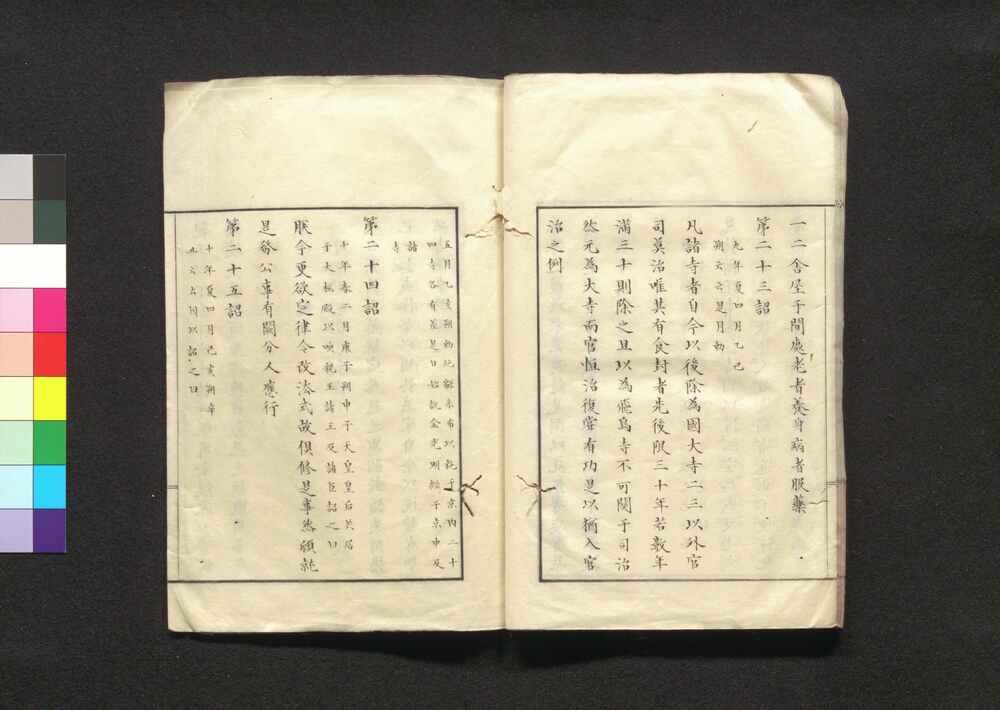 一二舎屋于間處老者養身病者服藥
第二十三詔
九年夏四月乙巳
朔云云是月勅
凡諸寺者自今以後除為國大寺二三以外官
司莫治唯其有食封者先後限三十年若数年
満三十則除之且以為飛鳥寺不可関于司治
然元為大寺而官恒治復嘗有功是以猶入官
治之例
五月乙亥朔勅絁綿糸布以施于京内二十
四寺各有差是日始説金光明経于宮中及
諸
寺
第二十四詔
十年春二月庚子朔甲子天皇皇后共居
于大極殿以喚親王諸王及諸臣詔之曰
朕今更欲定律令改法式故倶修是事然頓就
是務公事有闕分人應行
第二十五詔
十年夏四月己亥朔辛
丑云云因以詔之曰